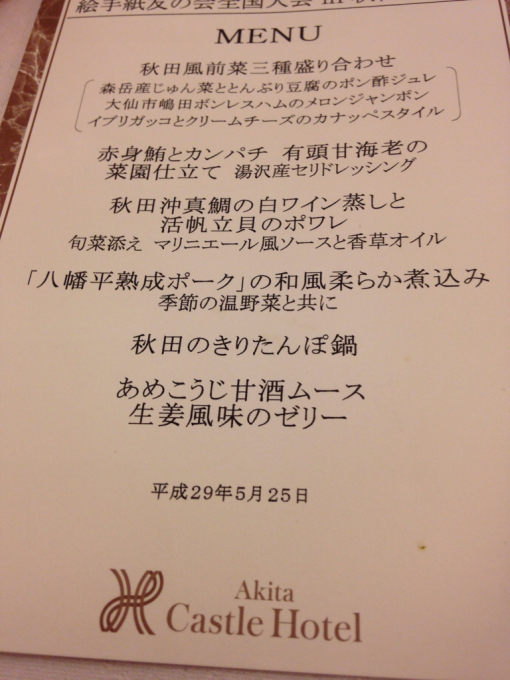 絵手紙友の会全国大会 in 秋
MENU
秋田風前菜三種盛り合わせ
森岳産じゅん菜ととんぶり豆腐のポン酢ジュレ
大仙市嶋田ボンレスハムのメロンジャンボン
イブリガッコとクリームチーズのカナッペスタイル
赤身鮪とカンパチ 有頭甘海老の
菜園仕立て 湯沢産セリドレッシング
秋田沖真鯛の白ワイン蒸しと
活帆立貝のポワレ
旬菜添え マリニエール風ソースと香草オイル
「八幡平熟成ポーク」の和風柔らか煮込み
季節の温野菜と共に
秋田のきりたんぽ鍋
あめこうじ甘酒ムース
生姜風味のゼリー
平成29年5月25日
Akita
Castle Hotel